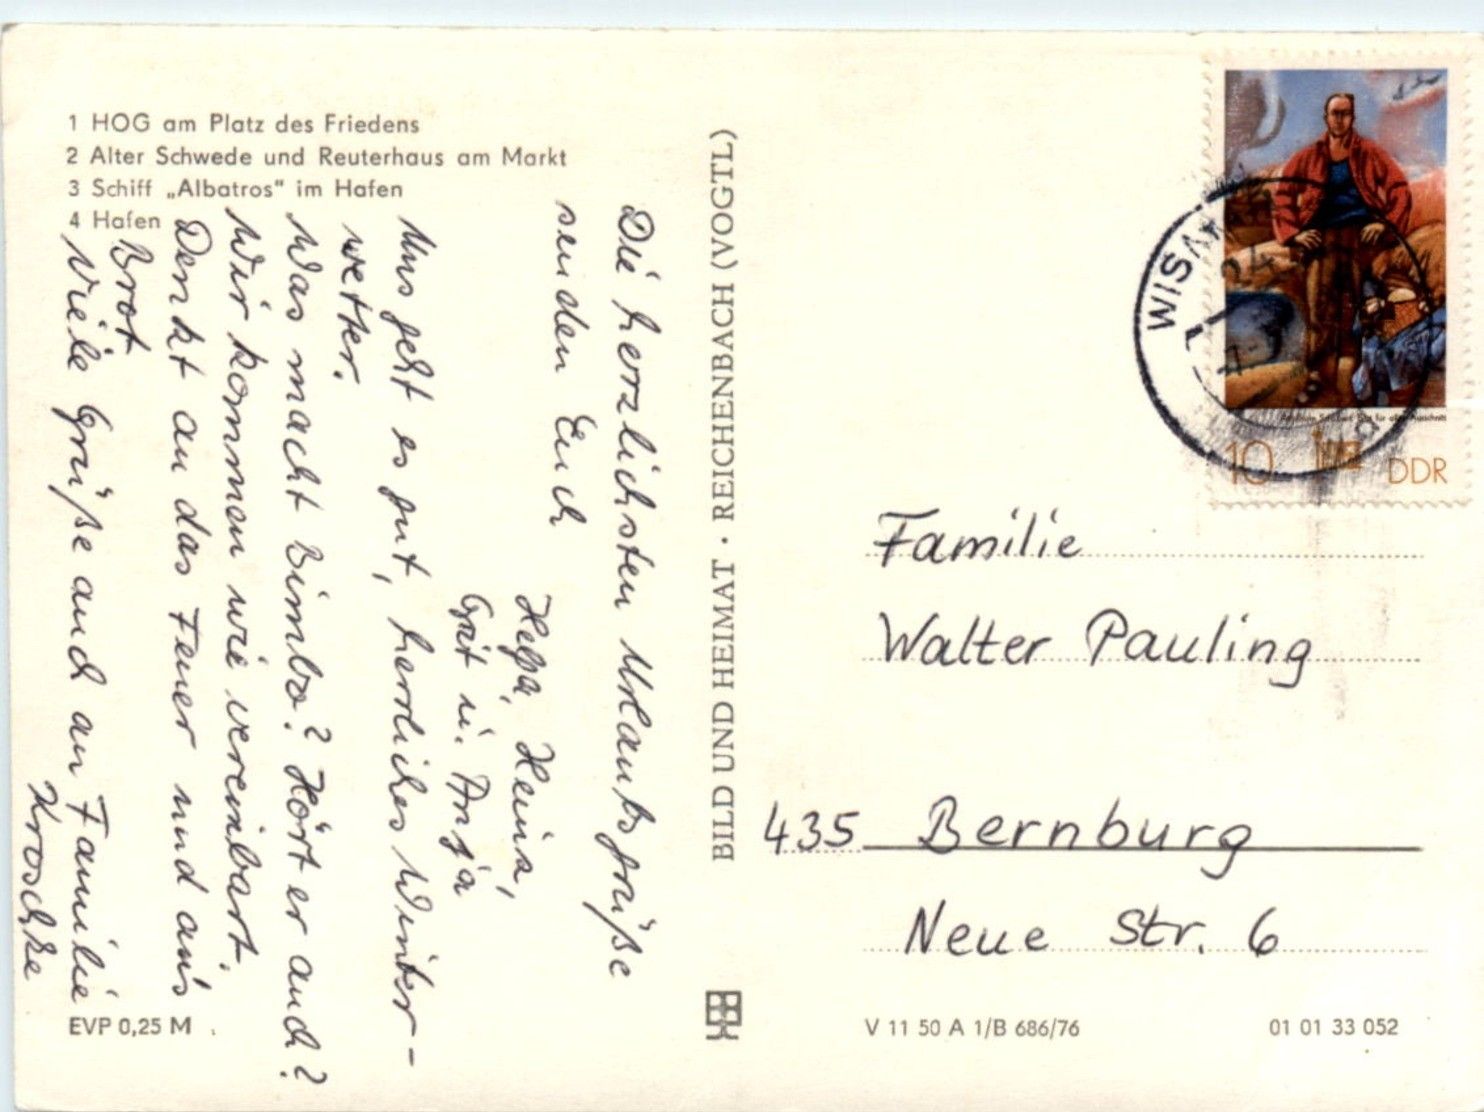 1 HOG am Platz des Friedens
2 Alter Schwede und Reuterhaus am Markt
3 Schiff „Albatros" im Hafen
4 Hafen
Die herzlichsten Urlaubsgrüße
senden Euch
Helga, Heinz,
Grit u. Anja
Uns geht es gut, herrliches Winter-
wetter.
Was macht Bimbo? Hört er auch?
Wir kommen wie vereinbart.
Denkt an das Feuer und an's
Brot
Viele Grüße auch an Familie
Kroschke
EVP 0,25 M
BILD UND HEIMAT · REICHENBACH (VOGTL)
10 DDR
Familie
Walter Pauling
435 Bernburg
Neue Str. 6
V 11 50 A 1/B 686/76
01 01 33 052